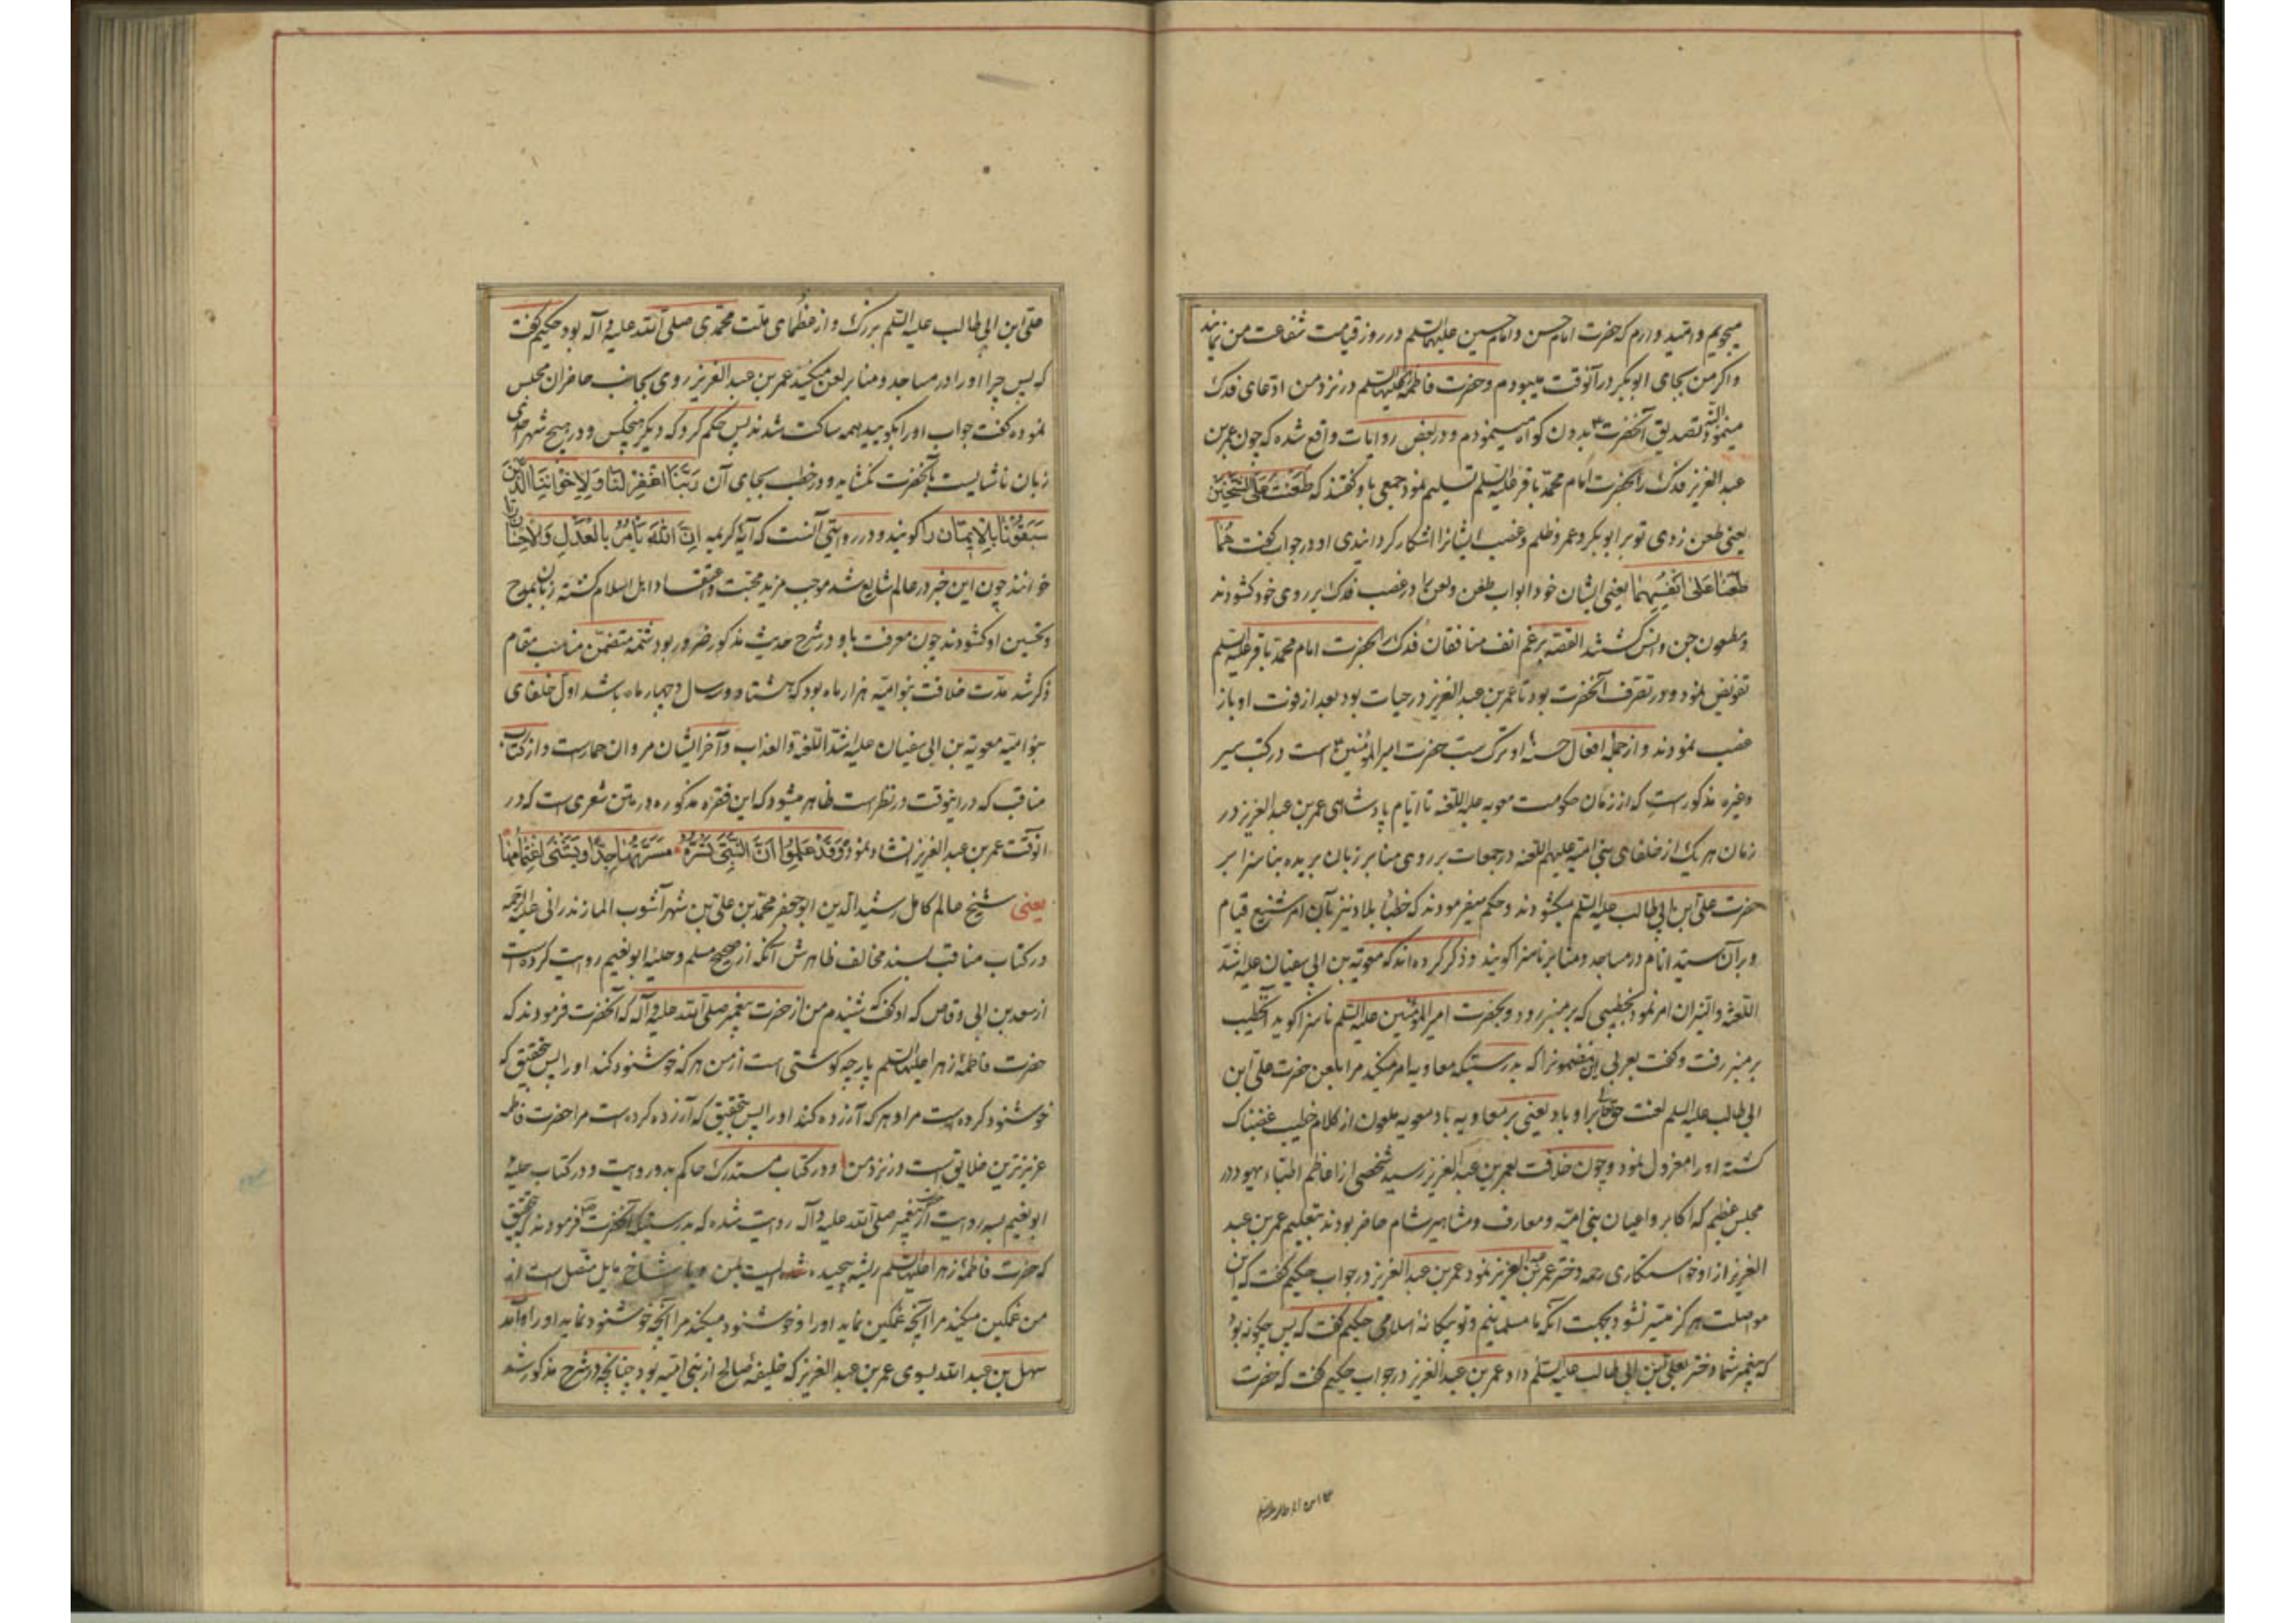 میجویم و امید دارم که حضرت امام حسن و امام حسین علیهما السلم در روز قیامت شفاعت من نمایند
و اکر من بجای ابوبکر در آنوقت میبودم و حضرت فاطمه علیها السلم در نزد من ادعای فدک
مینمود البته تصدیق آنحضرت بدون کواه مینمودم و در بعض روایات واقع شده که چون عمر بن
عبد العزیز فدک را بحضرت امام محمد باقر علیه السلم تسلیم نمود جمعی باو کفتند که طَعَنْتَ عَلَی الشَّیخَین
یعنی طعن زدی تو بر ابوبکر و عمر و ظلم و غصب ایشانرا آشکار کردانیدی او در جواب کفت هُمٰا
طَعَنٰا عَلیٰ اَنْفُسِهِمٰا یعنی ایشان خود ابواب طعن و لعن را در غصب فدک بر روی خود کشودند
و مطعون جن و انس کشتند القصه برغم انف منافقان فدک را بحضرت امام محمد باقر علیه السلم
تفویض نمود و در تصرف آنحضرت بود تا عمر بن عبد العزیز در حیات بود بعد از فوت او باز
غصب نمودند و از جمله افعال حسنهٔ او ترک سب حضرت امیر المؤمنین است در کتب سیر
و غیره مذکور است که از زمان حکومت معویه علیه اللعنه تا ایام پادشاهی عمر بن عبد العزیز در
زمان هر یک از خلفای بنی امیه علیهم اللعنه در جمعات بر روی منابر زبان بریده بناسزا بر
حضرت علی ابن ابی طالب علیه السلم میکشودند و حکم میفرمودند که خطبأ بلاد نیز بآن امر شنیع قیام
و بر آن سید انام در مساجد و منابر ناسزا کویند و ذکر کرده اند که معویة بن ابی سفیان علیه اشد
اللعنة و النیران امر نمود بخطیبی که بر منبر رود و بحضرت امیر المؤمنین علیه السلم ناسزا کوید آن خطیب
بر منبر رفت و کفت بعربی این مضمونرا که بدرستیکه معاویه امر میکند مرا بلعن حضرت علی ابن
ابی طالب علیه السلم لعنت حق تعالی بر او باد یعنی بر معاویه باد معویه ملعون از کلام خطیب غضبناک
کشته او را معزول نمود و چون خلافت بعمر بن عبد العزیز رسید شخصی از اعاظم اطباء یهود در
مجلس عظیم که اکابر و اعیان بنی امیه و معارف و مشاهیر شام حاضر بودند بتعلیم عمر بن عبد
العزیز از او خواستکاری دختر عمر بن عبد العزیز نمود عمر بن عبد العزیز در جواب حکیم کفت که این
مواصلت هرکز میسر نشود بجهت آنکه ما مسلمانیم و تو بیکانهٔ اسلامی حکیم کفت که پس چکونه بود
که پیغمبر شما دختر بعلی بن ابی طالب علیه السلم داد عمر بن عبد العزیز در جواب حکیم کفت که حضرت
علی ابن ابی طالب علیه السلم بزرک و از عظمای ملت محمدی صلی الله علیه و آله بود حکیم کفت
که پس چرا او را در مساجد و منابر لعن میکنید عمر بن عبد العزیز روی بجانب حاضران مجلس
نموده کفت جواب او را بکویید همه ساکت شدند پس حکم کرد که دیکر هیچکس و در هیچ شهر احدی
زبان ناشایست بآنحضرت نکشاید و در خطب بجای آن رَبَّنَا اغْفِرْ لَنٰا وَ لِاِخْوٰانِنَا الَّذینَ
سَبَقُونٰا بِالْاِیمٰانِ را کویند و در روایتی آنست که آیهٔ کریمه اِنَّ اللّٰهَ یَأْمُرُ بِالْعَدْلِ وَ الْاِحْسٰانِ را
خوانند چون این خبر در عالم شایع شد موجب مزید محبت و اعتقاد اهل اسلام کشته زبان بمدح
و تحسین او کشودند چون معرفت باو در شرح حدیث مذکور ضرور بود تتمه متضمن مناسب مقام
ذکر شد مدت خلافت بنو امیه هزار ماه بود که هشتاد و سه سال و چهار ماه باشد اول خلفای
بنو امیه معویة بن ابی سفیان علیه اشد اللعنة و العذاب و آخر ایشان مروان حمار است و از کتاب
مناقب که در اینوقت در نظر است ظاهر میشود که این فقره مذکوره در متن شعری است که در
آنوقت عمر بن عبد العزیز انشاد نمود وَ قَدْ عَلِمُوا اَنَّ النَّبِیَّ تَسُرُّهُ مَسَرَّتُهٰا جِدًّا وَ یَشْنٰی اغْتِمٰامُهٰا
یعنی شیخ عالم کامل رشید الدین ابو جعفر محمد بن علی بن شهر آشوب المازندرانی علیه الرحمه
در کتاب مناقب بسند مخالف ظاهرش آنکه از صحیح مسلم و حلیه ابو نعیم روایت کرده است
از سعد بن ابی وقاص که او کفت شنیدم من از حضرت پیغمبر صلی الله علیه و آله که آنحضرت فرمودند که
حضرت فاطمهٔ زهرا علیها السلم پارچه کوشتی است از من هر که خوشنود کند او را پس بتحقیق که
خوشنود کرده است مرا و هر که آزرده کند او را پس بتحقیق که آزرده کرده است مرا حضرت فاطمه
عزیزترین خلایق است در نزد من و در کتاب مستدرک حاکم بدو روایت و در کتاب حلیهٔ
ابو نعیم بسه روایت از حضرت پیغمبر صلی الله علیه و آله روایت شده که بدرستیکه آنحضرت فرمودند که بتحقیق
که حضرت فاطمهٔ زهرا علیها السلم ریشه پیچیده شده ایست بمن و یا شاخ مایل متصل است از
من غمکین میکند مرا آنچه غمکین نماید او را و خوشنود میکند مرا آنچه خوشنود نماید او را و آمد
سهل بن عبد الله بسوی عمر بن عبد العزیز که خلیفهٔ صالح از بنی امیه بود چنانچه در شرح مذکور شد